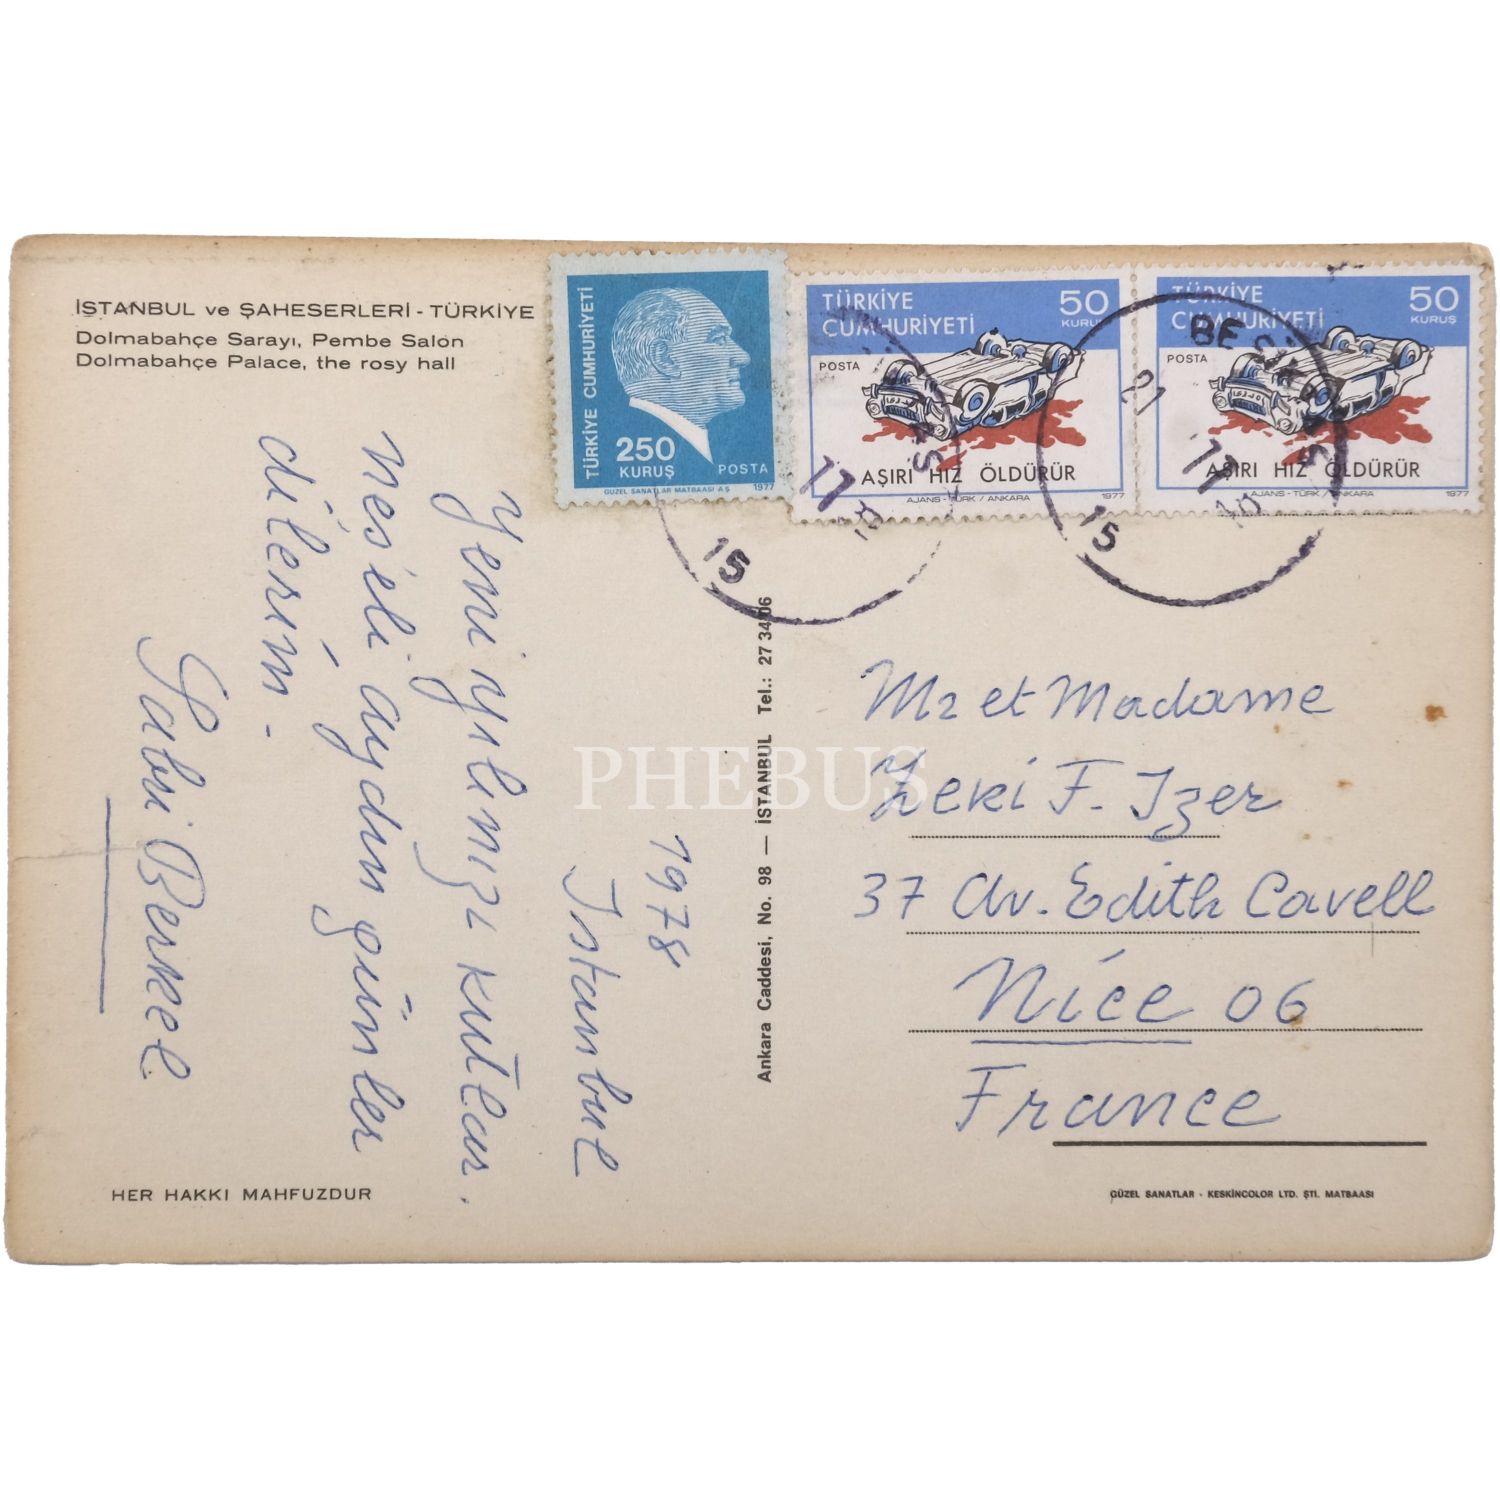 İSTANBUL ve ŞAHESERLERİ - TÜRKİYE
Dolmabahçe Sarayı, Pembe Salon
Dolmabahçe Palace, the rosy hall
TÜRKİYE CUMHURİYETİ
250
KURUŞ
POSTA
GÜZEL SANATLAR MATBAASI A.Ş 1977
TÜRKİYE
CUMHURİYETİ
50
KURUŞ
POSTA
AŞIRI HIZ ÖLDÜRÜR
AJANS - TÜRK / ANKARA 1977
TÜRKİYE
CUMHURİYETİ
50
KURUŞ
POSTA
AŞIRI HIZ ÖLDÜRÜR
AJANS - TÜRK / ANKARA 1977
15
17
21
15
17
1978
Istanbul
Yeni yılınızı kutlar.
neşeli aydın günler
dilerim.
Sabri Berkel
Ankara Caddesi, No. 98 — İSTANBUL Tel.: 27 34 06
Mr et Madame
Zeki F. Izer
37 Av. Edith Cavell
Nice 06
France
HER HAKKI MAHFUZDUR
GÜZEL SANATLAR - KESKİNCOLOR LTD. ŞTİ. MATBAASI
PHEBUS